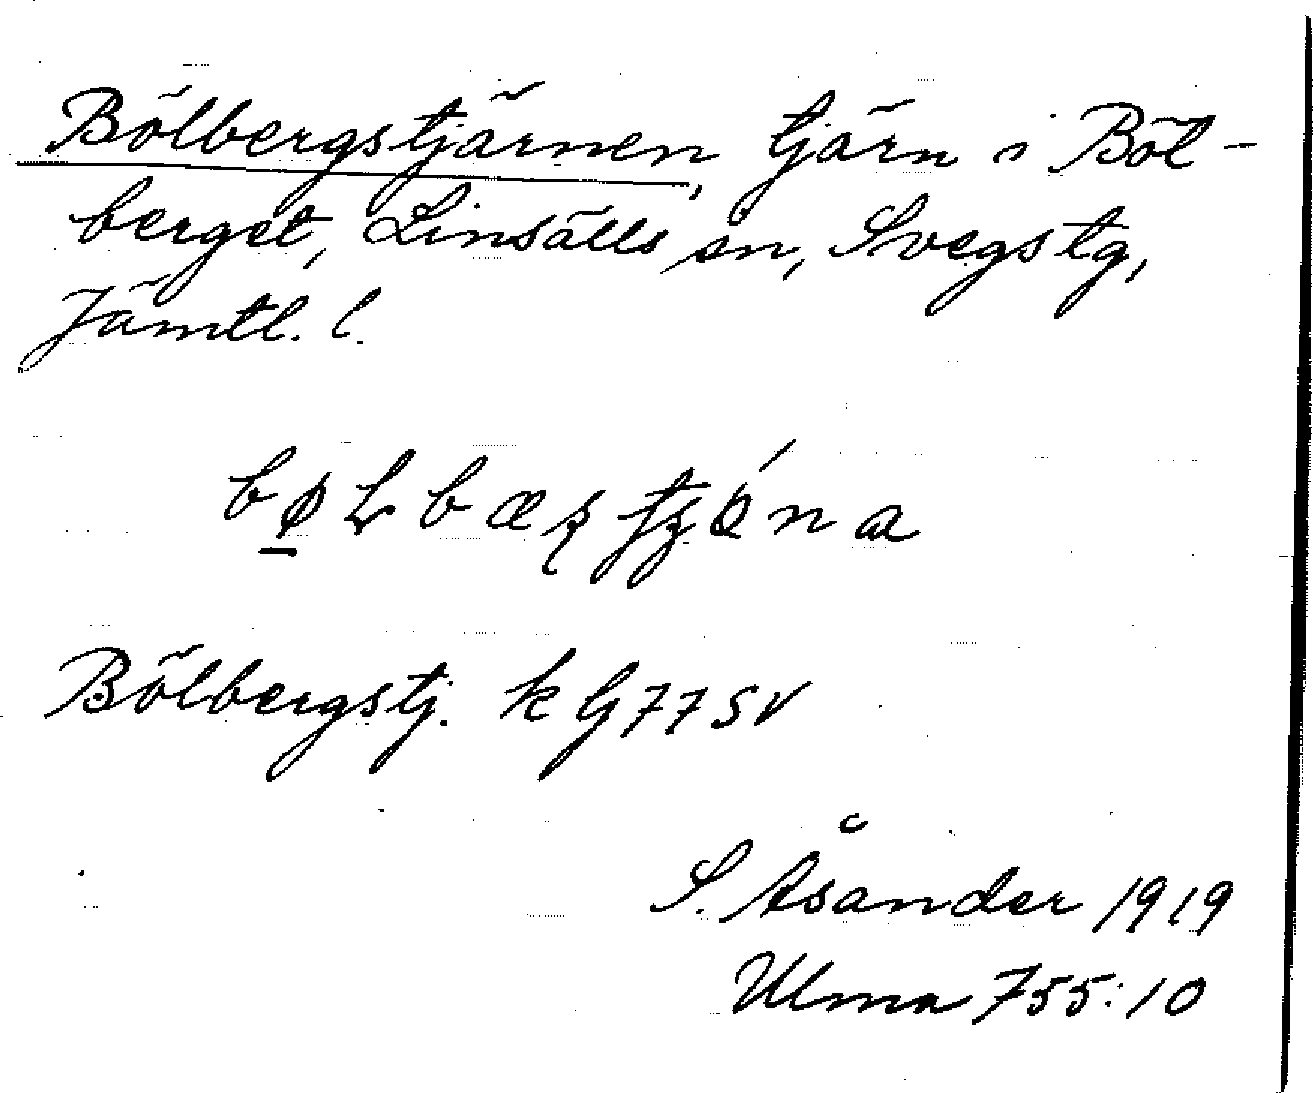 Bölbergstjärnen, tjärn i Böl-
berget, Linsälls sn, Svegs tg,
Jämtl. l.
Bölbergstj. k G77 SV
S. Åsander 1919
Ulma 755:10